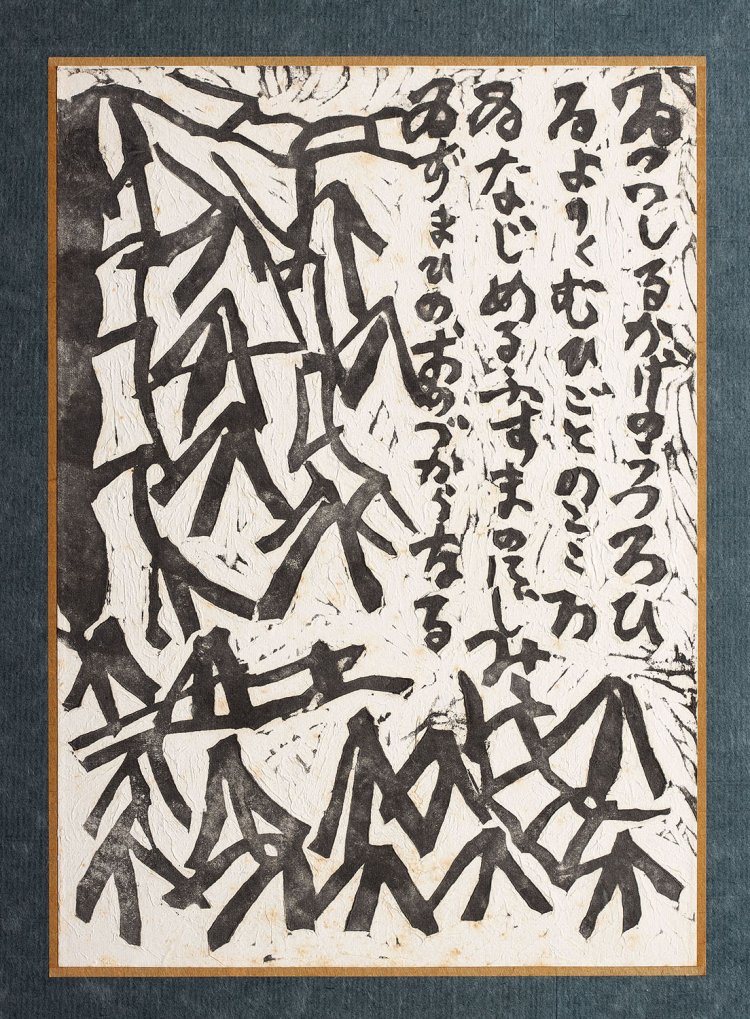 ゐつつしるかげのうつろひ
ゐよりくむひごとのここ
ゐなじめるふすまの
ゐずまひのおのづからなる